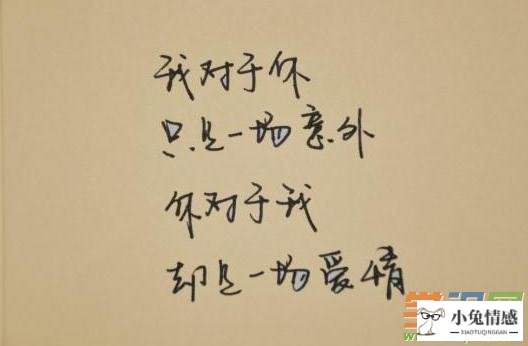 我对于你
只是一场意外
你对于我
却是一场爱情
小兔情感
XIAOTUQINGGAN